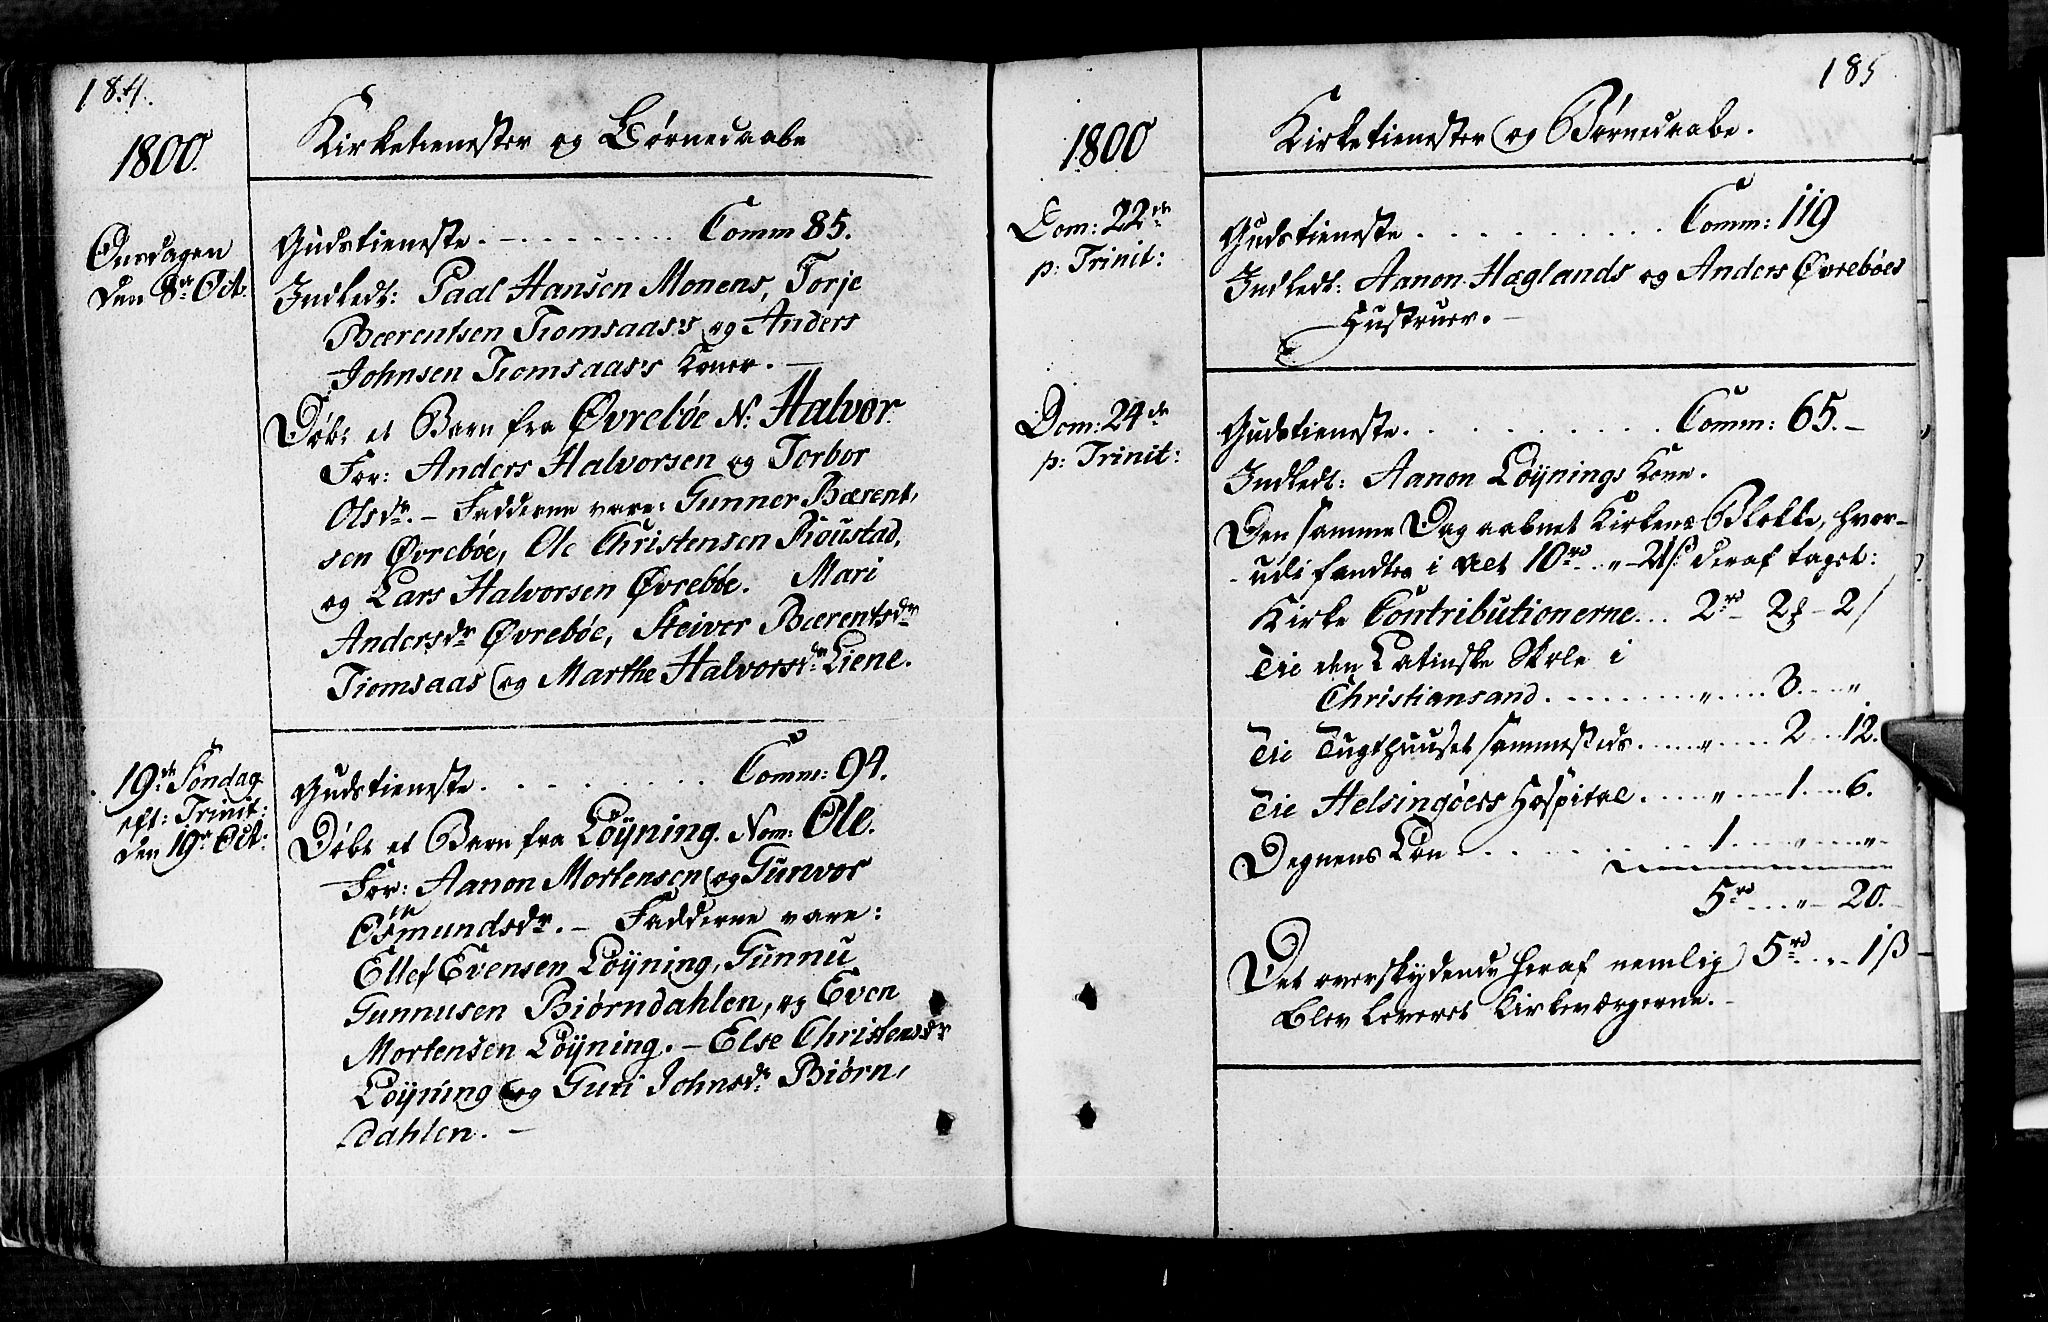 184.
1800.
Kirketienester og Børnedaabe
Onsdagen
den 8de Oct:
Gudstieneste. - . . . . . . . . Comm 85.
Indledt: Paal Hansen Monens, Torje
Bærentsen Tiomsaas's og Anders
Johnsen Tiomsaas's Koner. -
Døbt et Barn fra Øvrebøe N: Halvor.
For: Anders Halvorsen og Torbor
Olsdr. - Fadderne vare: Gunner Bærent,
sen Øvrebøe, Ole Christensen Røustad,
og Lars Halvorsen Øvrebøe. Mari
Andersdr Øvrebøe, Steiver Bærentsdr
Tiomsaas og Marthe Halvorsdr Liene.
19de Søndag
eft: Trinit:
den 19de Oct:
Gudstieneste. . . . . . . . Comm: 94.
Døbt et Barn fra Løyning. Nom: Ole.
For: Aanon Mortensen og Gunvor
Osmundsdr. - Fadderne vare:
Ellef Evensen Løyning, Gunnu
Gunnusen Biørndahlen, og Even
Mortensen Løyning. - Else Christensdr
Løyning og Guri Johnsdr Biørn,
dahlen. -
185
1800
Kirketienester og Børnedaabe.
Dom: 22de
p: Trinit:
Gudstieneste . . . . . . . . . . Comm: 119
Indledt: Aanon Hæglands og Anders Øvrebøes
Hustruer. -
Dom: 24de
p: Trinit:
Gudstieneste. . . . . . . . . . Comm: 65. -
Indledt: Aanon Løynings Kone.
Den samme Dag aabnet Kirkens Blokke, hvor-
- udi fandtes i alt 10rd. " - 21ß deraf taget:
Kirke Contributionerne... 2rd - 2 - 2/
Til den Latinske Skole i
Christiansand . . . . . . . . " . . . . 3. . . . "
Til Tugthuuset sammesteds. . . . . " . . . . 2 . . . 12.
Til Helsingøers Hospital . . . . " . . . . 1 . . . 6.
Degnens Løn . . . . . . . . . 1 . . . . " . . . . " -
5rd . . . " - 20. -
Det overskydende heraf nemlig 5rd . . " . . 1ß
blev leveret Kirkeværgerne. -